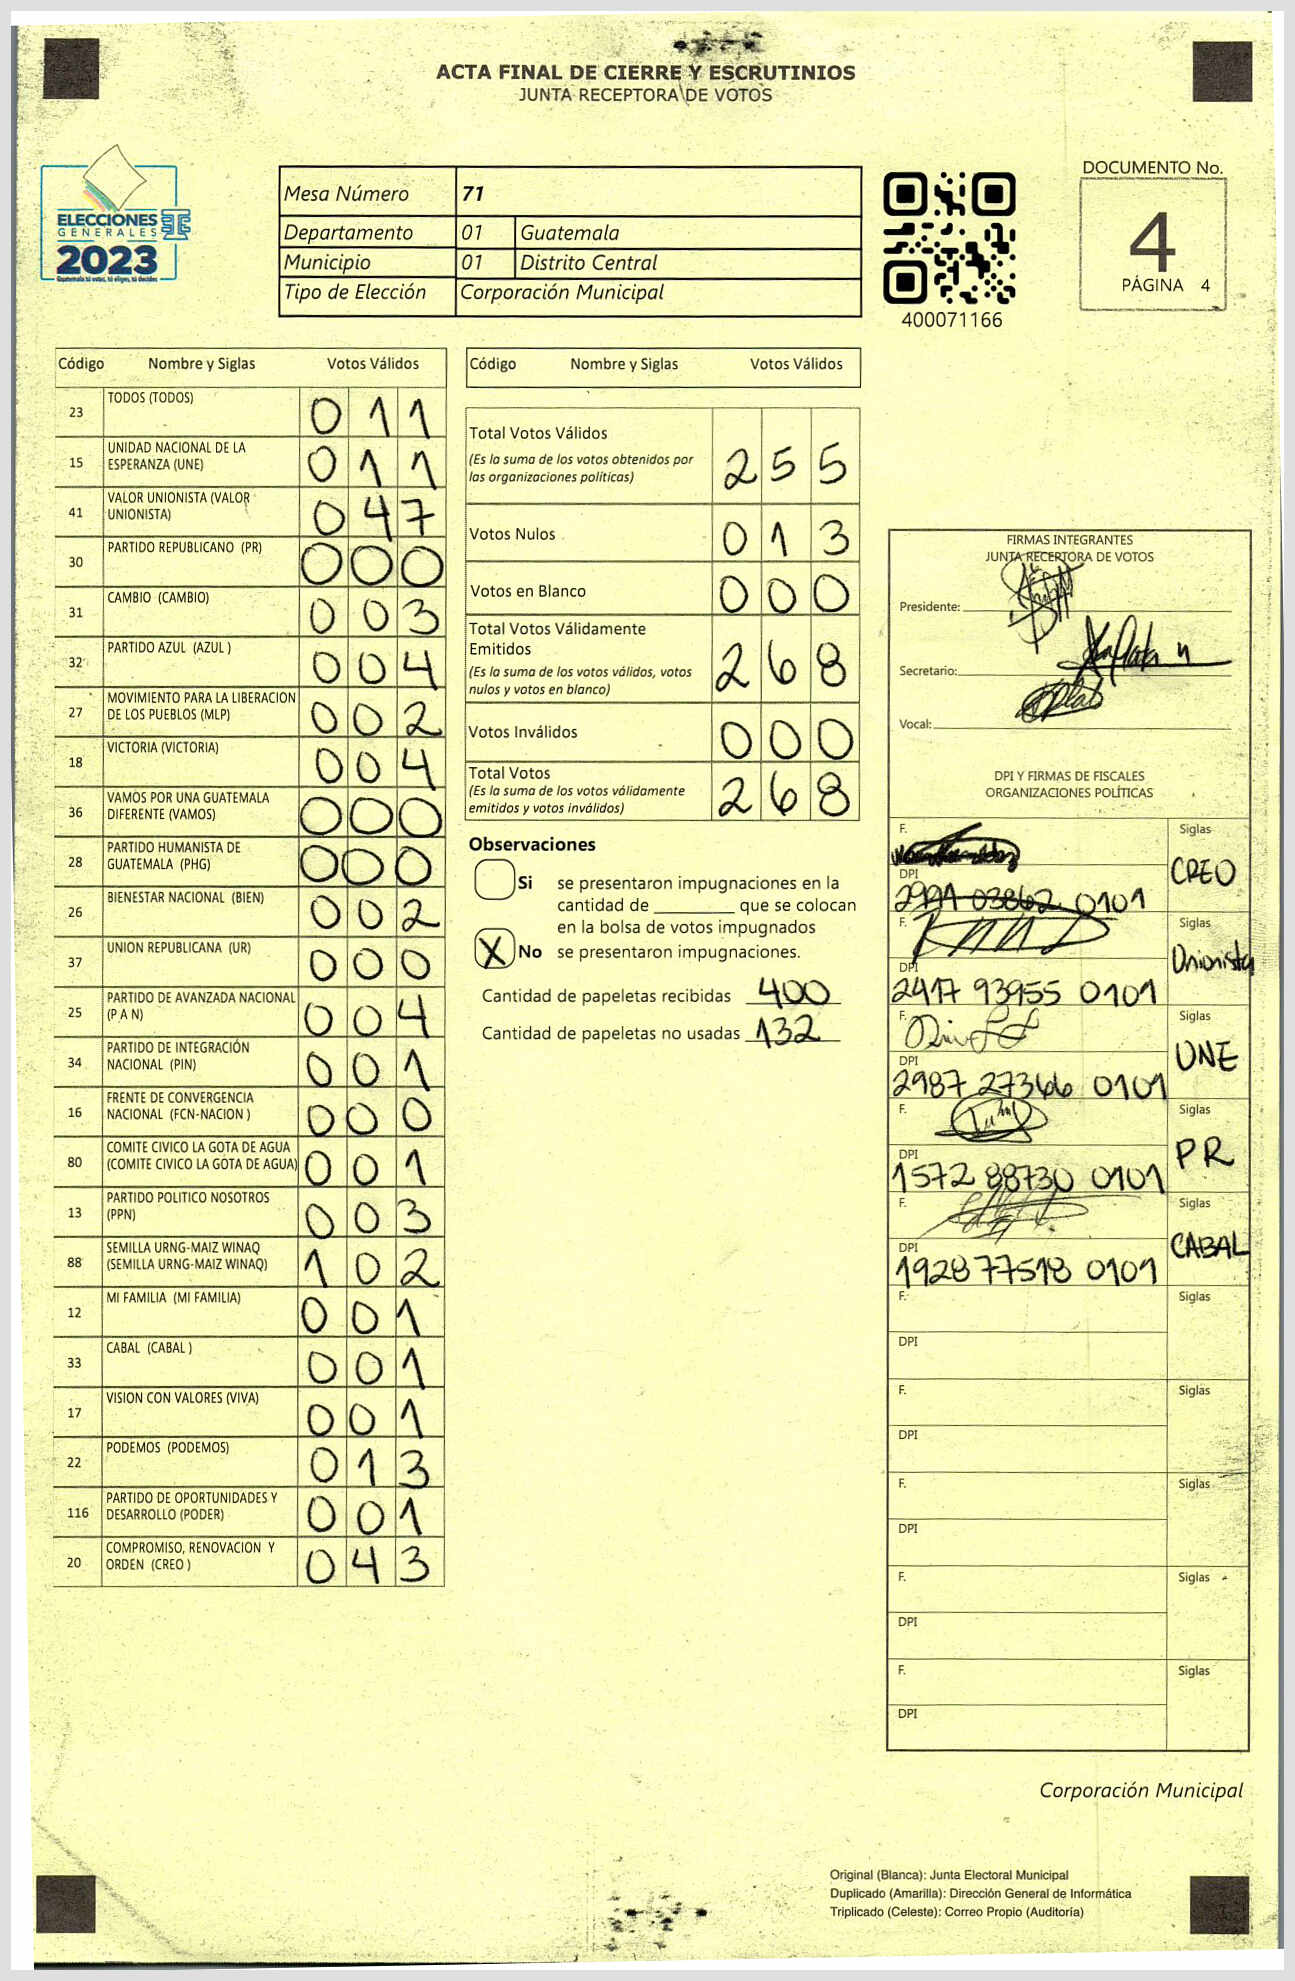 ACTA FINAL DE CIERRE Y ESCRUTINIOS
JUNTA RECEPTORA DE VOTOS
ELECCIONES
GENERALES
2023
Guatemala tú votas, tú eliges, tú decides
Mesa Número 71
Departamento 01 Guatemala
Municipio 01 Distrito Central
Tipo de Elección Corporación Municipal
400071166
DOCUMENTO No.
4
PÁGINA 4
Código Nombre y Siglas Votos Válidos
23 TODOS (TODOS) 0 1 1
15 UNIDAD NACIONAL DE LA
ESPERANZA (UNE) 0 1 1
41 VALOR UNIONISTA (VALOR
UNIONISTA) 0 4 7
30 PARTIDO REPUBLICANO (PR) 0 0 0
31 CAMBIO (CAMBIO) 0 0 3
32 PARTIDO AZUL (AZUL ) 0 0 4
27 MOVIMIENTO PARA LA LIBERACION
DE LOS PUEBLOS (MLP) 0 0 2
18 VICTORIA (VICTORIA) 0 0 4
36 VAMOS POR UNA GUATEMALA
DIFERENTE (VAMOS) 0 0 0
28 PARTIDO HUMANISTA DE
GUATEMALA (PHG) 0 0 0
26 BIENESTAR NACIONAL (BIEN) 0 0 2
37 UNION REPUBLICANA (UR) 0 0 0
25 PARTIDO DE AVANZADA NACIONAL
(P A N) 0 0 4
34 PARTIDO DE INTEGRACIÓN
NACIONAL (PIN) 0 0 1
16 FRENTE DE CONVERGENCIA
NACIONAL (FCN-NACION ) 0 0 0
80 COMITE CIVICO LA GOTA DE AGUA
(COMITE CIVICO LA GOTA DE AGUA) 0 0 1
13 PARTIDO POLITICO NOSOTROS
(PPN) 0 0 3
88 SEMILLA URNG-MAIZ WINAQ
(SEMILLA URNG-MAIZ WINAQ) 1 0 2
12 MI FAMILIA (MI FAMILIA) 0 0 1
33 CABAL (CABAL ) 0 0 1
17 VISION CON VALORES (VIVA) 0 0 1
22 PODEMOS (PODEMOS) 0 1 3
116 PARTIDO DE OPORTUNIDADES Y
DESARROLLO (PODER) 0 0 1
20 COMPROMISO, RENOVACION Y
ORDEN (CREO ) 0 4 3
Código Nombre y Siglas Votos Válidos
Total Votos Válidos
(Es la suma de los votos obtenidos por
las organizaciones políticas) 2 5 5
Votos Nulos 0 1 3
Votos en Blanco 0 0 0
Total Votos Válidamente
Emitidos
(Es la suma de los votos válidos, votos
nulos y votos en blanco) 2 6 8
Votos Inválidos 0 0 0
Total Votos
(Es la suma de los votos válidamente
emitidos y votos inválidos) 2 6 8
Observaciones
Si se presentaron impugnaciones en la
cantidad de ________ que se colocan
en la bolsa de votos impugnados
X No se presentaron impugnaciones.
Cantidad de papeletas recibidas 400
Cantidad de papeletas no usadas 132
FIRMAS INTEGRANTES
JUNTA RECEPTORA DE VOTOS
Presidente:
Secretario:
Vocal:
DPI Y FIRMAS DE FISCALES
ORGANIZACIONES POLÍTICAS
F. Siglas
CREO
DPI
03862 0101
F. Siglas
Unionista
DPI
2417 93955 0101
F. Siglas
UNE
DPI
2987 27366 0101
F. Siglas
PR
DPI
1572 88730 0101
F. Siglas
CABAL
DPI
1928 77518 0101
F. Siglas
DPI
F. Siglas
DPI
F. Siglas
DPI
F. Siglas
DPI
F. Siglas
DPI
Corporación Municipal
Original (Blanca): Junta Electoral Municipal
Duplicado (Amarilla): Dirección General de Informática
Triplicado (Celeste): Correo Propio (Auditoría)